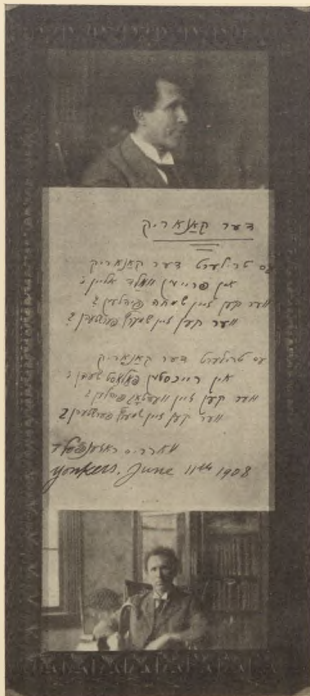 דער קאַנאַריק
עס טרילערט דער קאַנאַריק
אין פרייען וואַלד אליין ;
ווער קען זיין שמחה פיהלען ?
ווער קען זיין פערשטעהן ?
עס טרילערט דער קאַנאַריק
אין רייכסטען פאַלאַסט שעהן ;
ווער קען זיין וועהטאָג פיהלען ?
ווער קען זיין שמערץ פערשטעהן ?
מאָרריס ראָזענפעלד
Yonkers, June 11th 1908